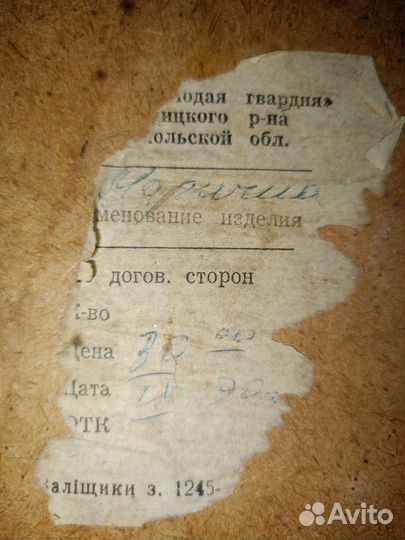 лодая гвардия»
ицкого р-на
польской обл.
менование изделия
догов. сторон
к-во
Цена 30 00
Дата IX 90
ОТК
Заліщики з. 1245-
Avito